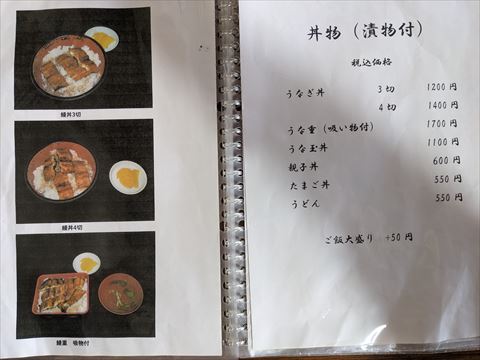 鰻丼3切
鰻丼4切
鰻重 吸物付
丼物（漬物付）
税込価格
うなぎ丼 3切 1200円
4切 1400円
うな重（吸い物付） 1700円
うな玉丼 1100円
親子丼 600円
たまご丼 550円
うどん 550円
ご飯大盛り +50円